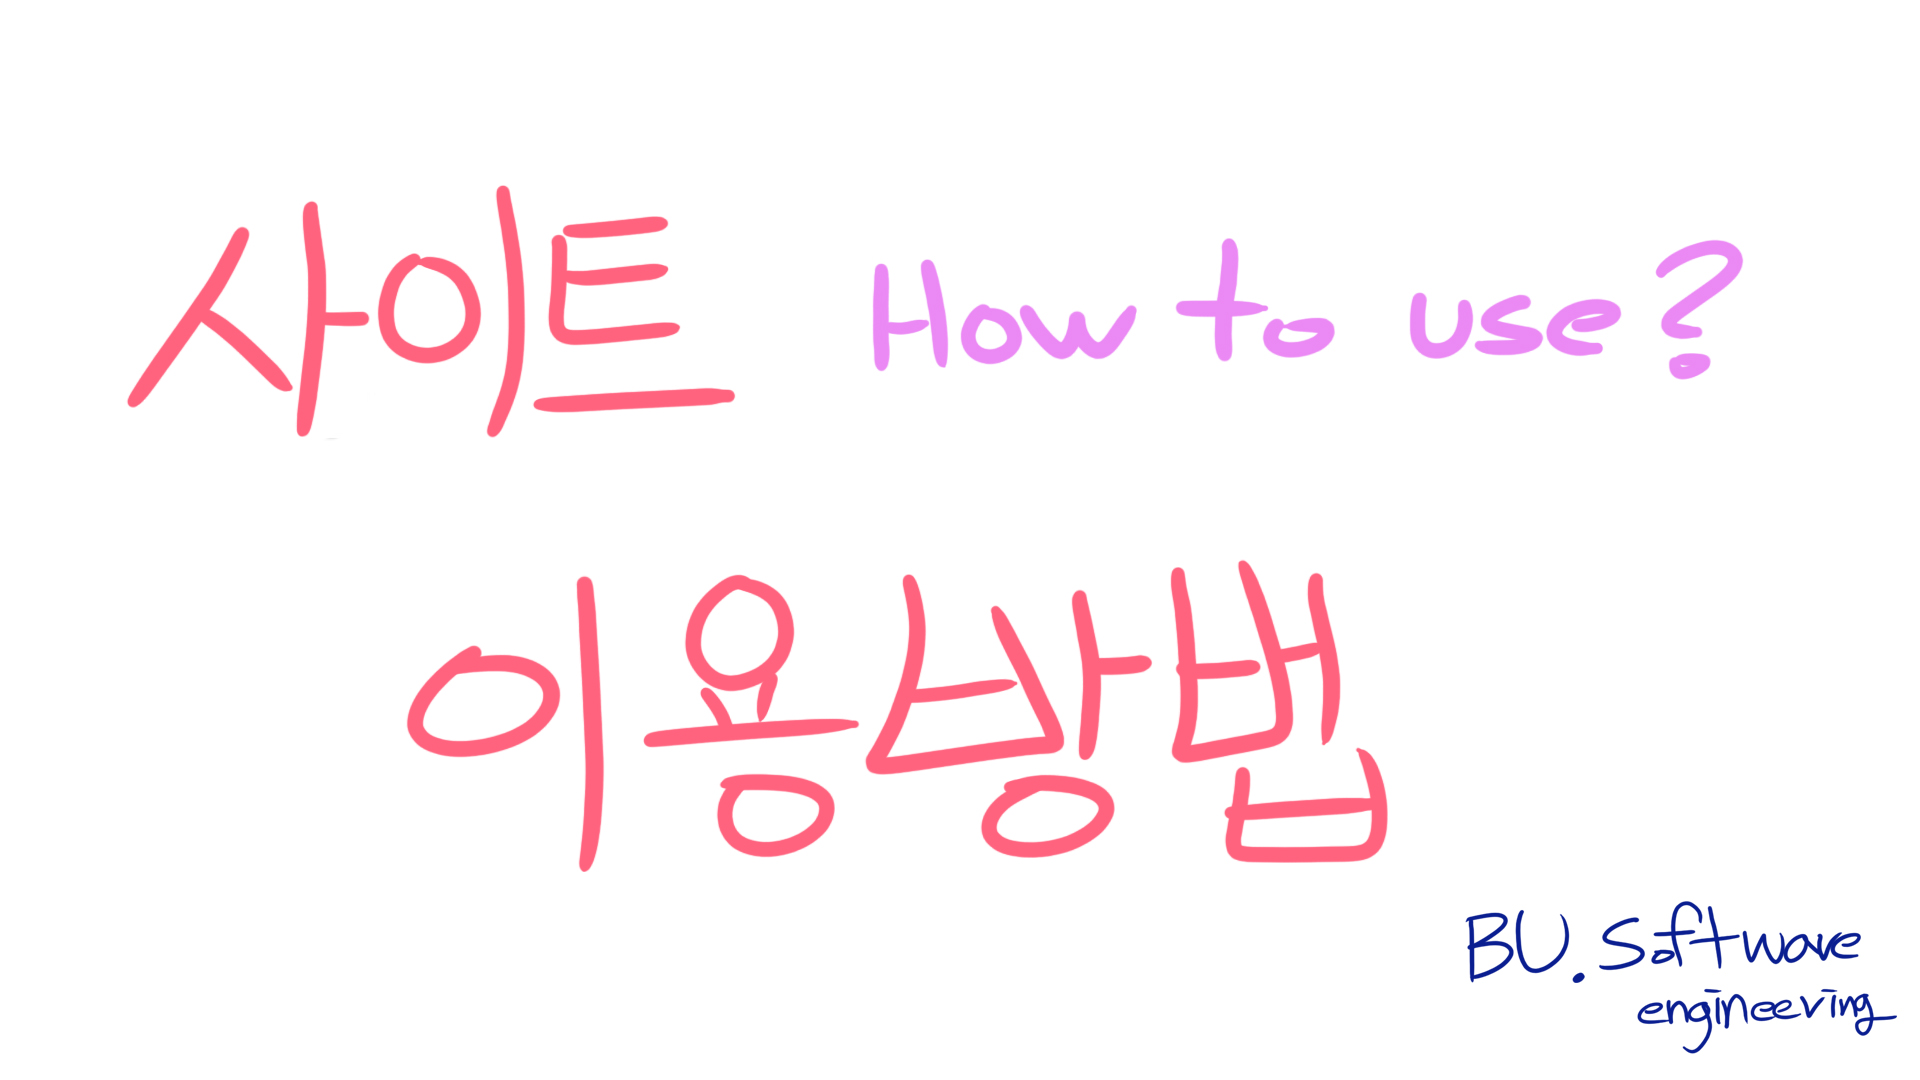 사이트 How to use?
이용방법
BU. Software
engineering